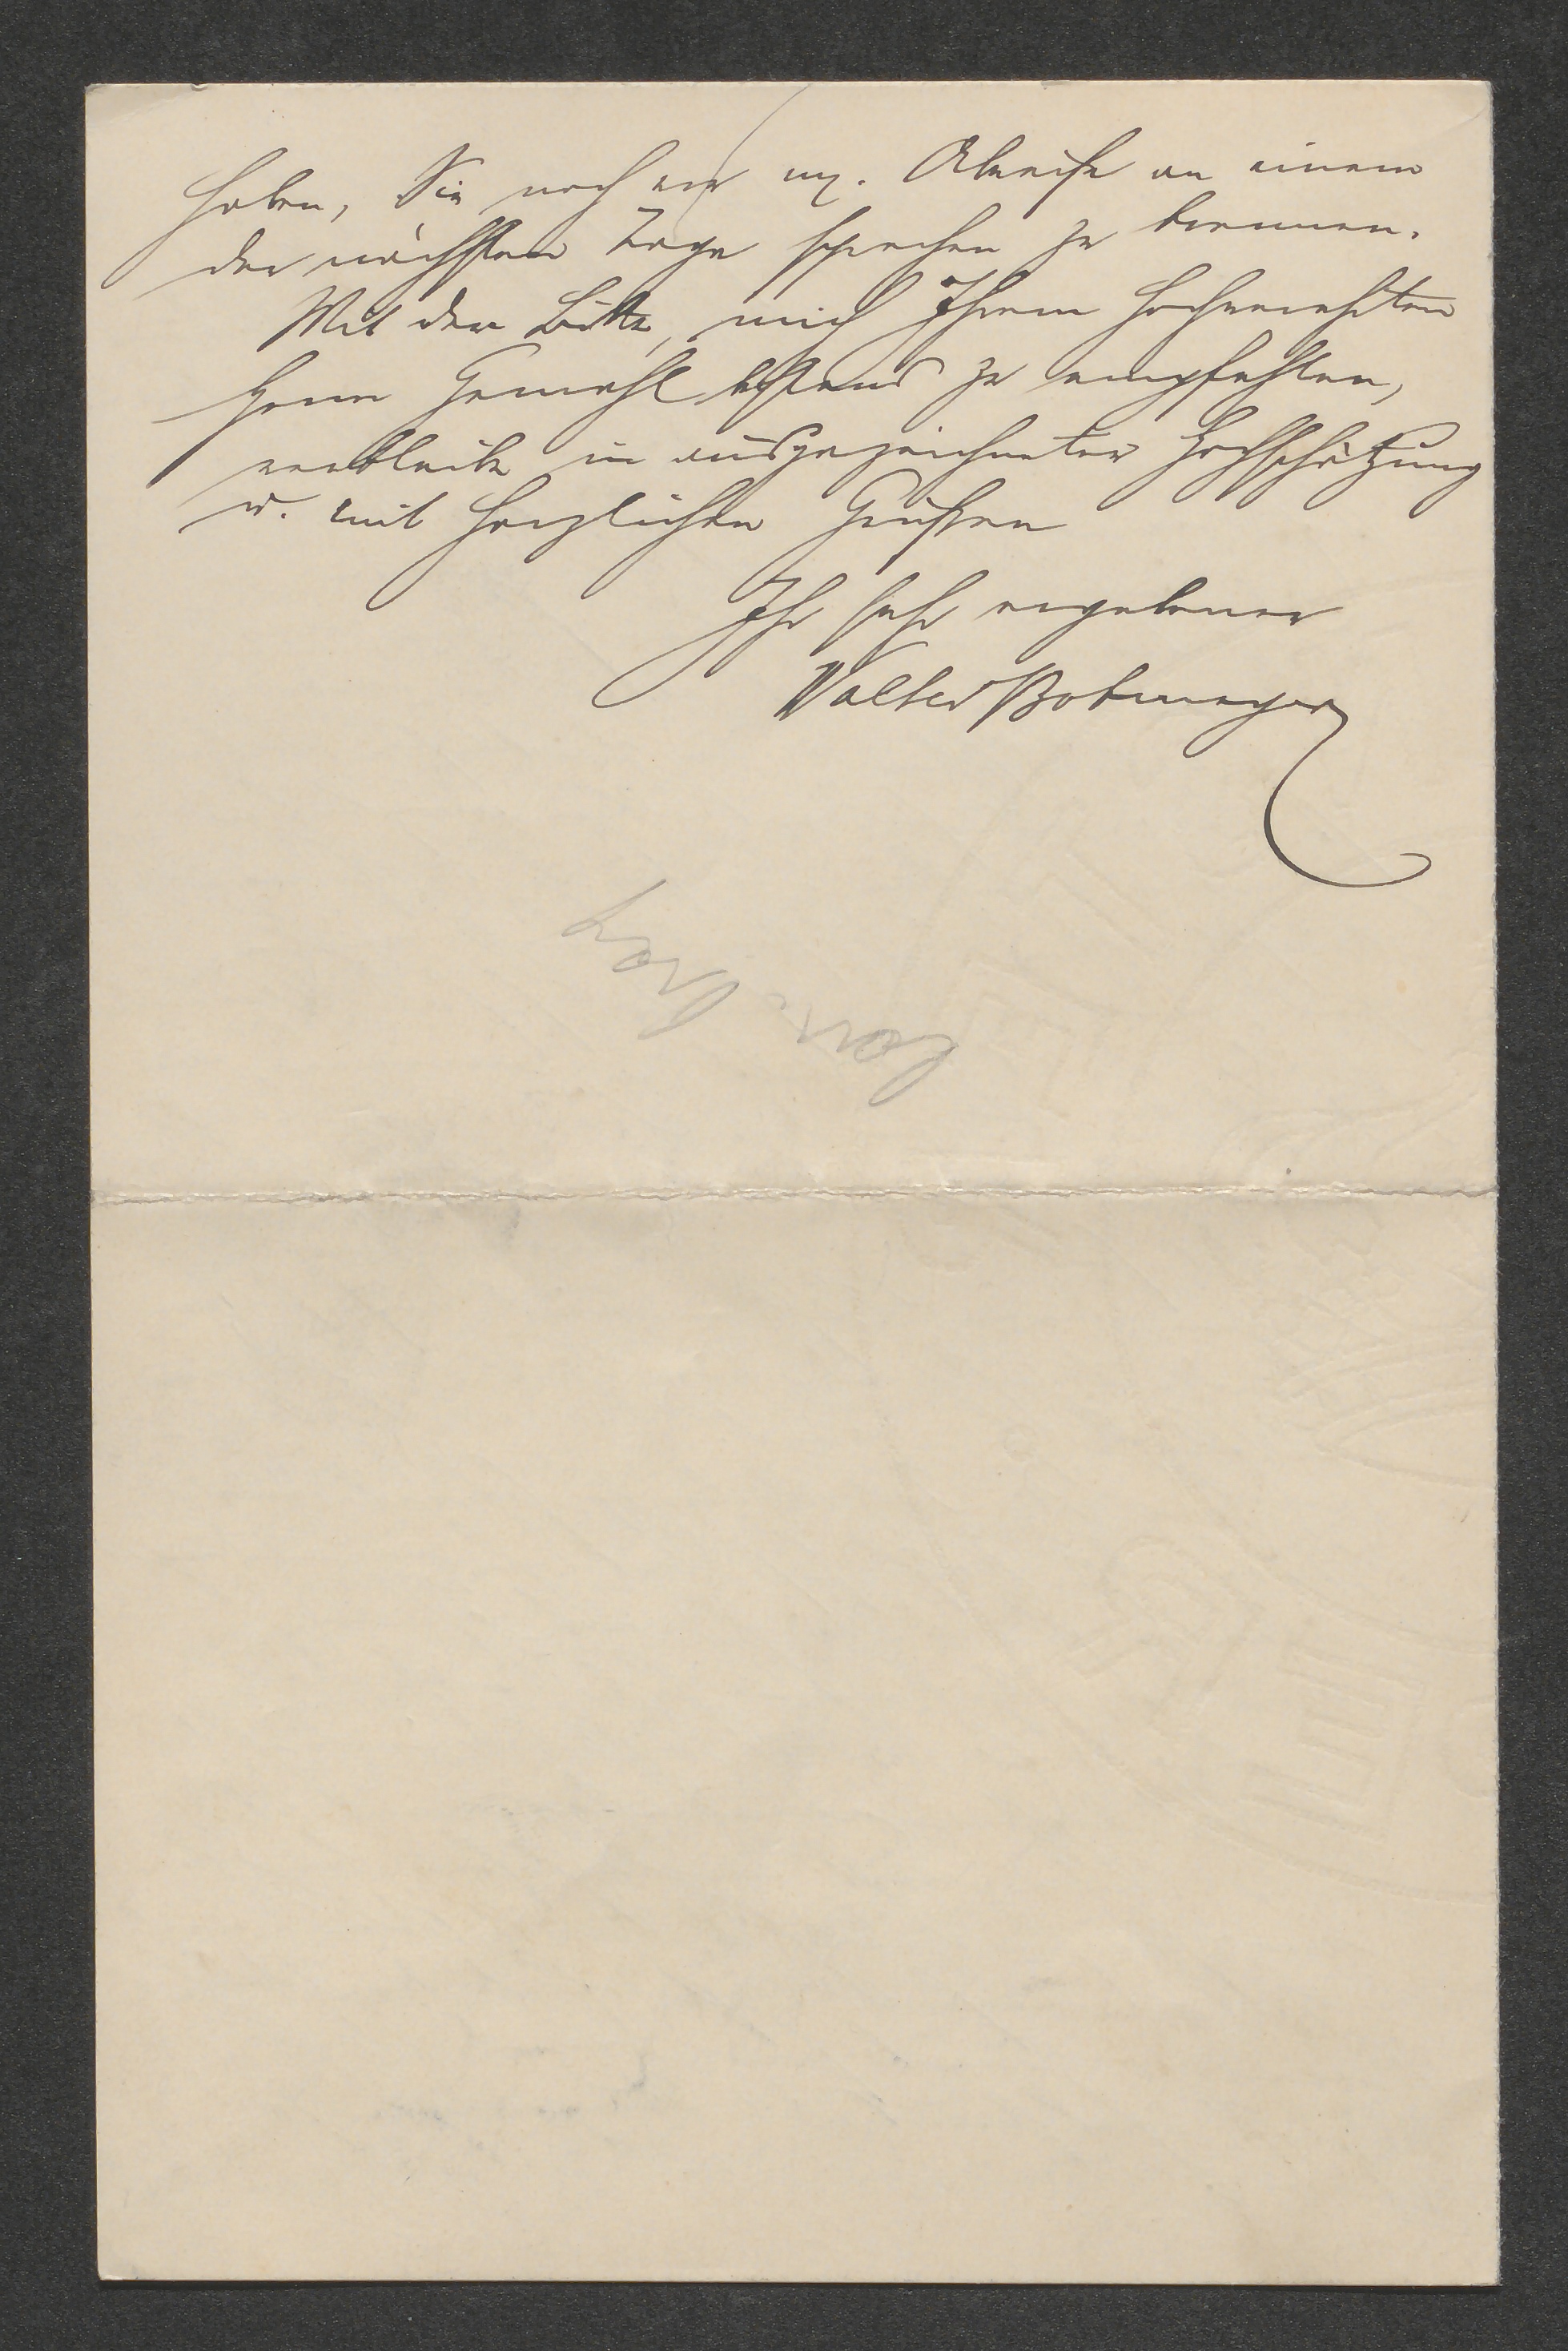 haben, Sie noch vor m. Abreise an einem
der nächsten Tage sprechen zu koennen.
Mit der Bitte, mich Ihrem hochverehrten
Herrn Gemahl bestens zu empfehlen,
verbleibe in ausgezeichneter Hochschätzung
u. mit herzlichen Grüßen
Ihr sehr ergebener
Walter Bohmeyer